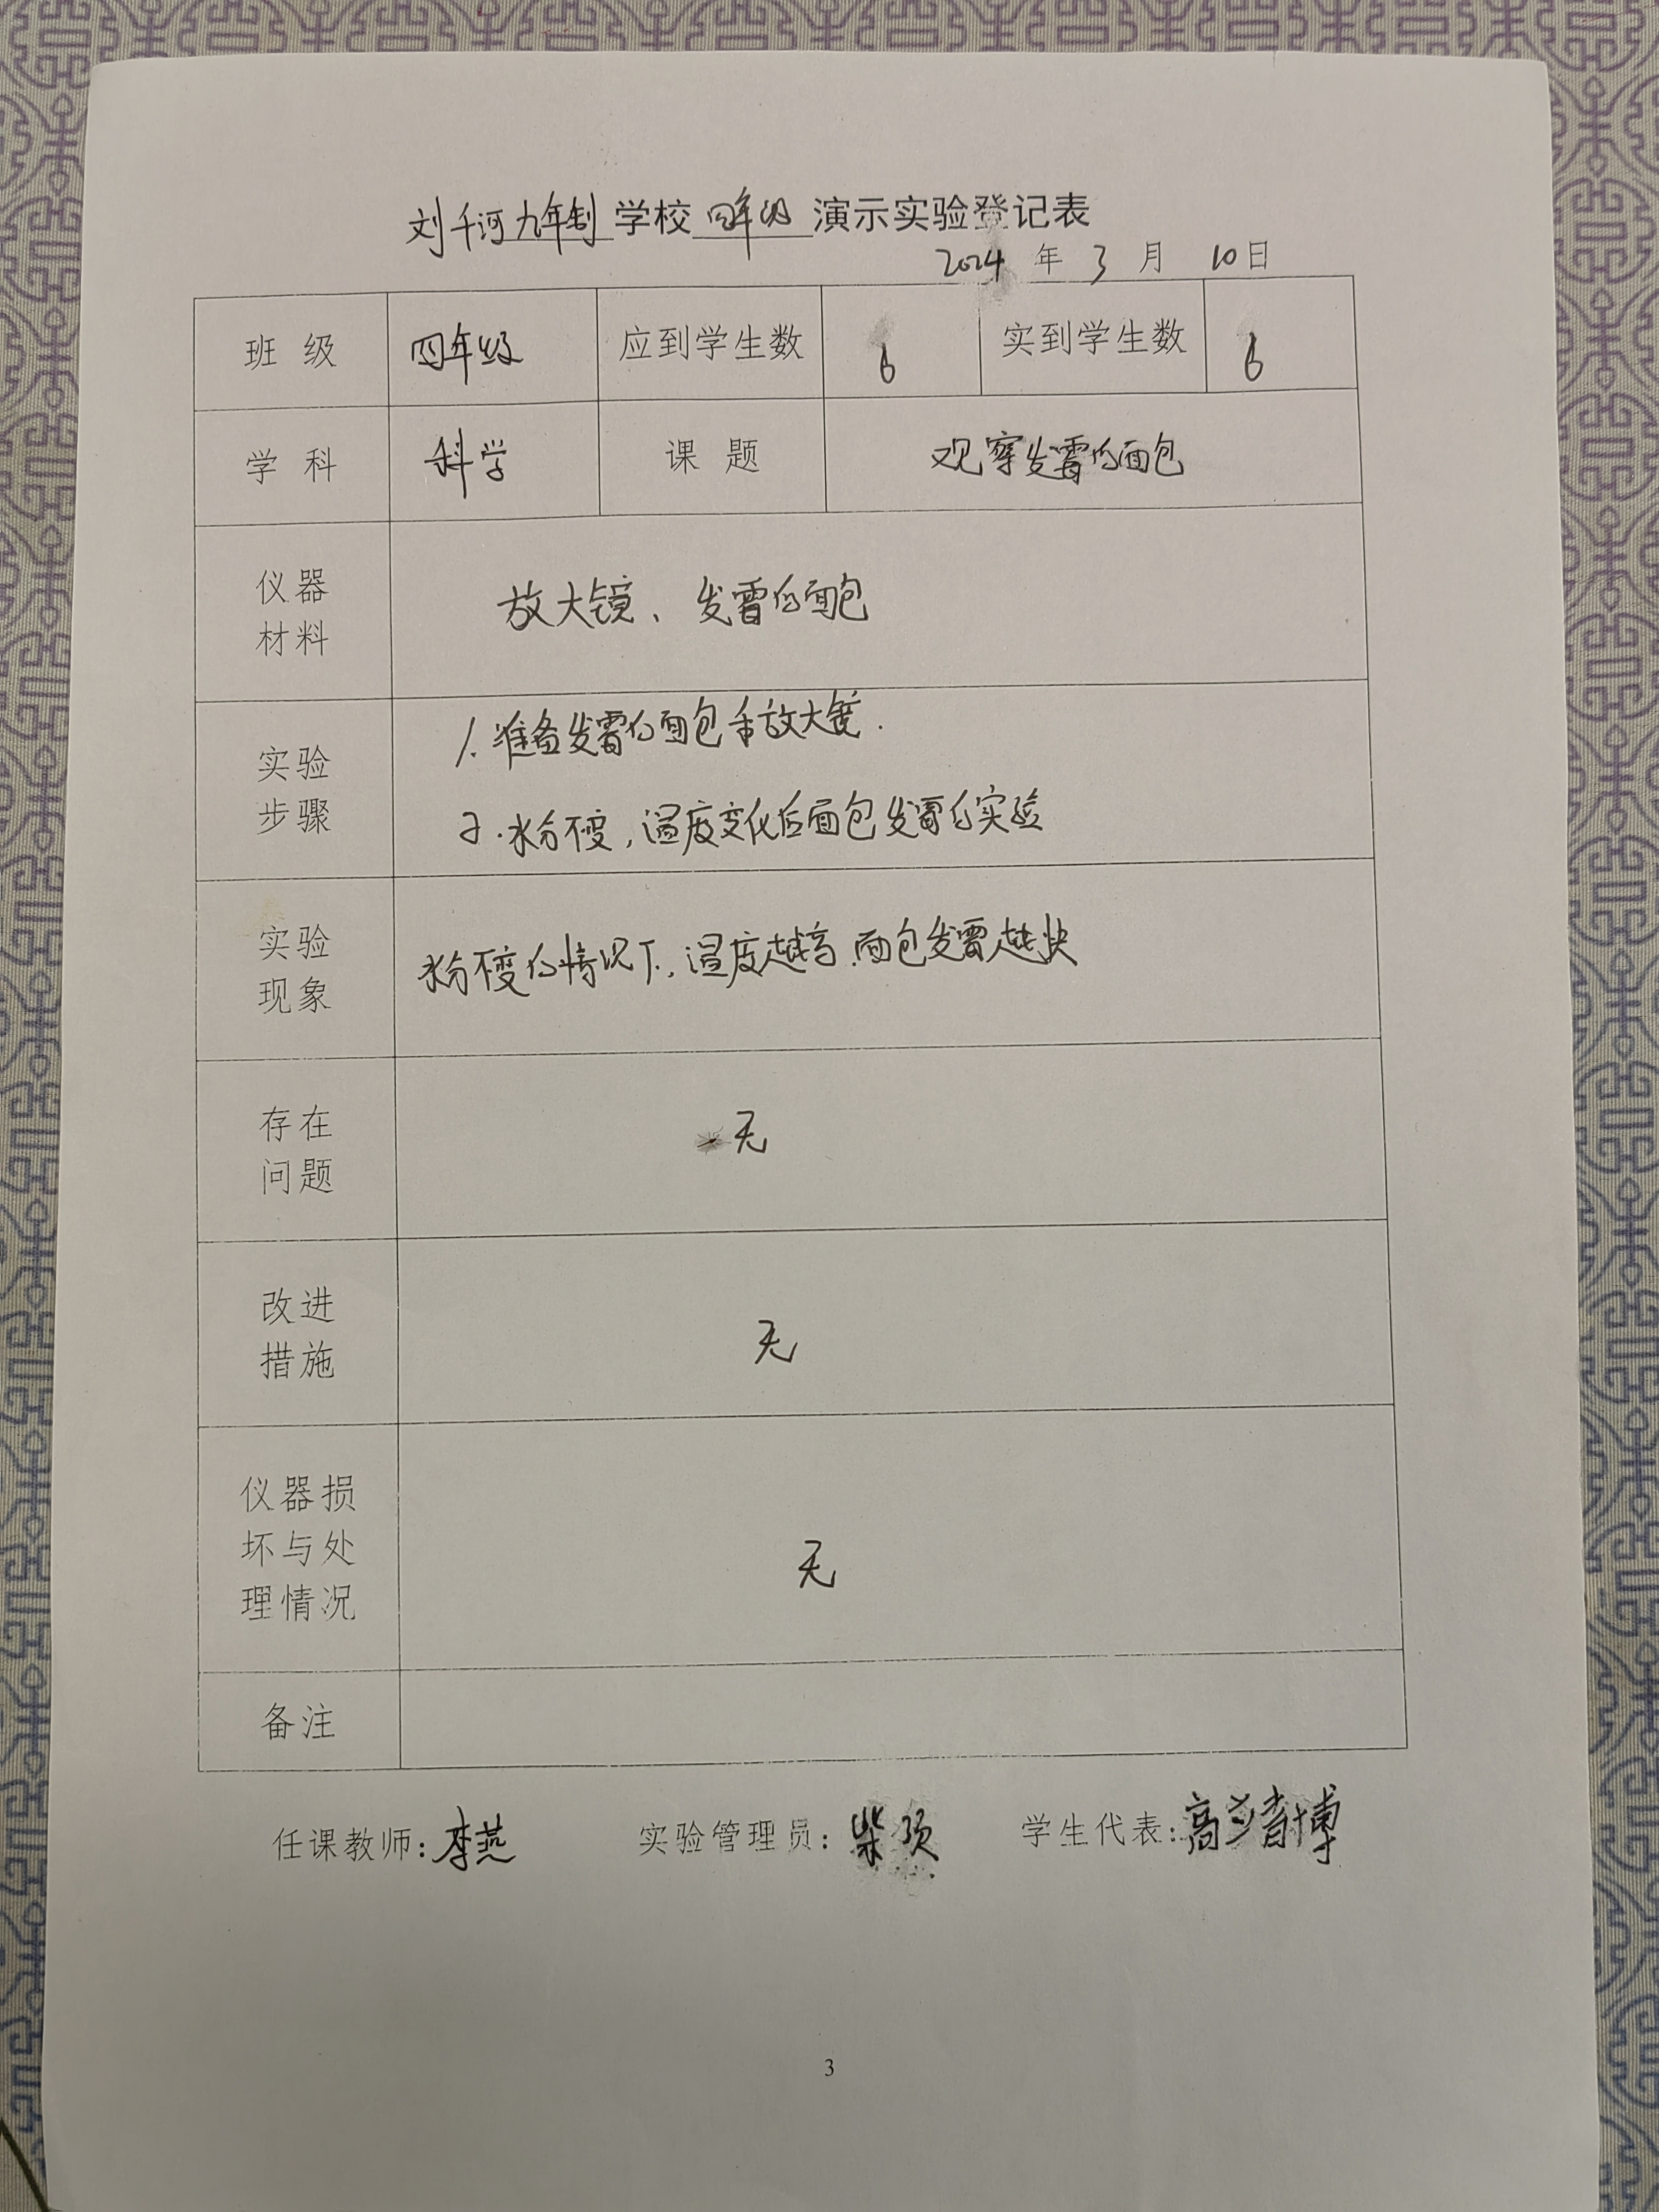 刘千河九年制学校四年级演示实验登记表
2024年3月10日
班级 四年级 应到学生数 6 实到学生数 6
学科 科学 课题 观察发霉的面包
仪器
材料
放大镜、发霉的面包
实验
步骤
1.准备发霉的面包和放大镜.
2.水分不变,温度变化后面包发霉的实验
实验
现象
水分不变的情况下,温度越高,面包发霉越快
存在
问题
无
改进
措施
无
仪器损
坏与处
理情况
无
备注
任课教师:李燕 实验管理员:柴 学生代表:高博
3